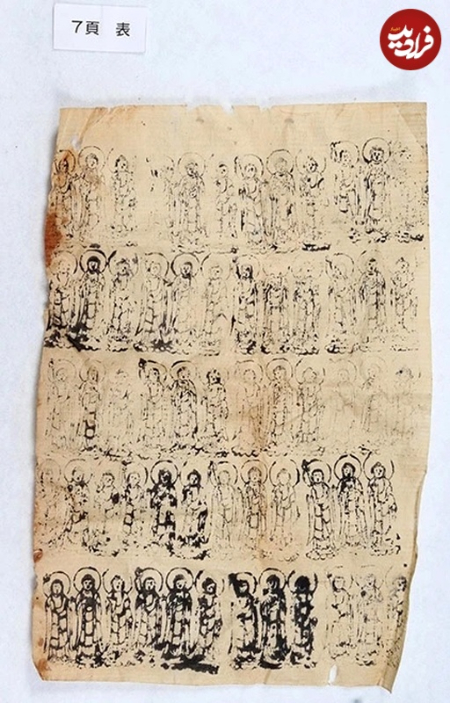 7頁 表
فرادید